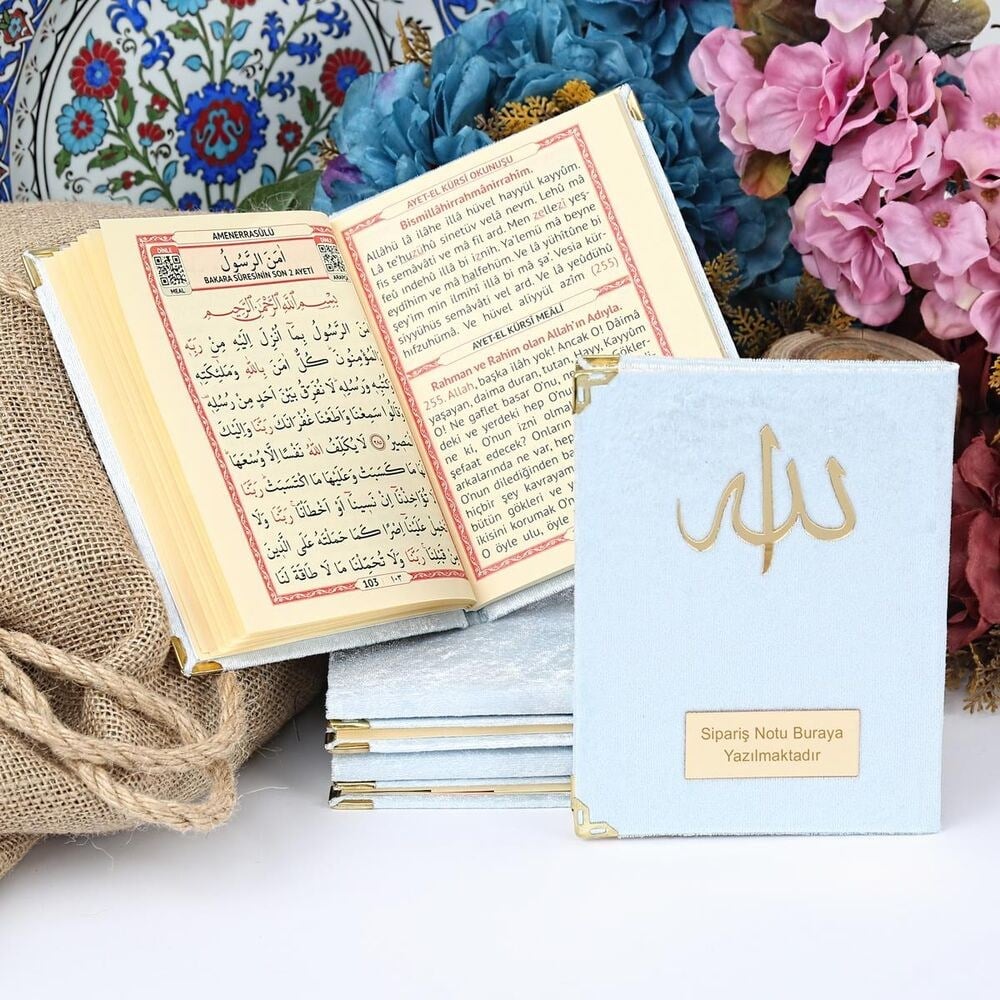 AMENERRASÛLÜ
DİNLE
DİNLE
اٰمَنَ الرَّسُولُ
BAKARA SÛRESİNİN SON 2 AYETİ
MEAL
ARAPÇA
بِسْمِ اللّٰهِ الرَّحْمٰنِ الرَّحِيمِ
اٰمَنَ الرَّسُولُ بِمَٓا اُنْزِلَ اِلَيْهِ مِنْ رَبِّه۪
وَالْمُؤْمِنُونَۜ كُلٌّ اٰمَنَ بِاللّٰهِ وَمَلٰٓئِكَتِه۪
وَكُتُبِه۪ وَرُسُلِه۪ۜ لَا نُفَرِّقُ بَيْنَ اَحَدٍ مِنْ رُسُلِه۪
وَقَالُوا سَمِعْنَا وَاَطَعْنَا غُفْرَانَكَ رَبَّنَا وَاِلَيْكَ
الْمَص۪يرُ ﴿٢٨٥﴾ لَا يُكَلِّفُ اللّٰهُ نَفْسًا اِلَّا وُسْعَهَا
مَا كَسَبَتْ وَعَلَيْهَا مَا اكْتَسَبَتْۜ رَبَّنَا
تُؤَاخِذْنَٓا اِنْ نَس۪ينَٓا اَوْ اَخْطَأْنَاۚ رَبَّنَا وَلَا
تَحْمِلْ عَلَيْنَٓا اِصْرًا كَمَا حَمَلْتَهُ عَلَى الَّذ۪ينَ
مِنْ قَبْلِنَاۚ رَبَّنَا وَلَا تُحَمِّلْنَا مَا لَا طَاقَةَ لَنَا
103 ١٠٣
AYET-EL KÜRSÎ OKUNUŞU
Bismillâhirrahmânirrahim.
Allâhü lâ ilâhe illâ hüvel hayyül kayyûm.
Lâ te'huzühû sinetüv velâ nevm. Lehû mâ
fis semâvâti ve mâ fil ard. Men zellezî yeş-
feû ındehû illâ bi iznih. Ya'lemü mâ beyne
eydîhim ve mâ halfehüm. Ve lâ yühîtûne bi
şey'im min ılmihî illâ bi mâ şa'. Vesia kür-
siyyühüs semâvâti vel ard. Ve lâ yeûdühû
hıfzuhümâ. Ve hüvel aliyyül azîm (255)
AYET-EL KÜRSÎ MEÂLİ
Rahman ve Rahim olan Allah'ın Adıyla.
255. Allah, başka ilâh yok! Ancak O! Dâima
yaşayan, daima duran, tutan, Hayy, Kayyûm
O! Ne gaflet basar O'nu,
deki ve yerdeki hep O'nu
ne ki, O'nun izni olma
şefaat edecek? Onların
arkalarında ne var, hep
O'nun dilediğinden ba
hiçbir şey kavrayam
bütün gökleri ve y
ikisini korumak O'n
O öyle ulu, öyle
الله
Sipariş Notu Buraya
Yazılmaktadır